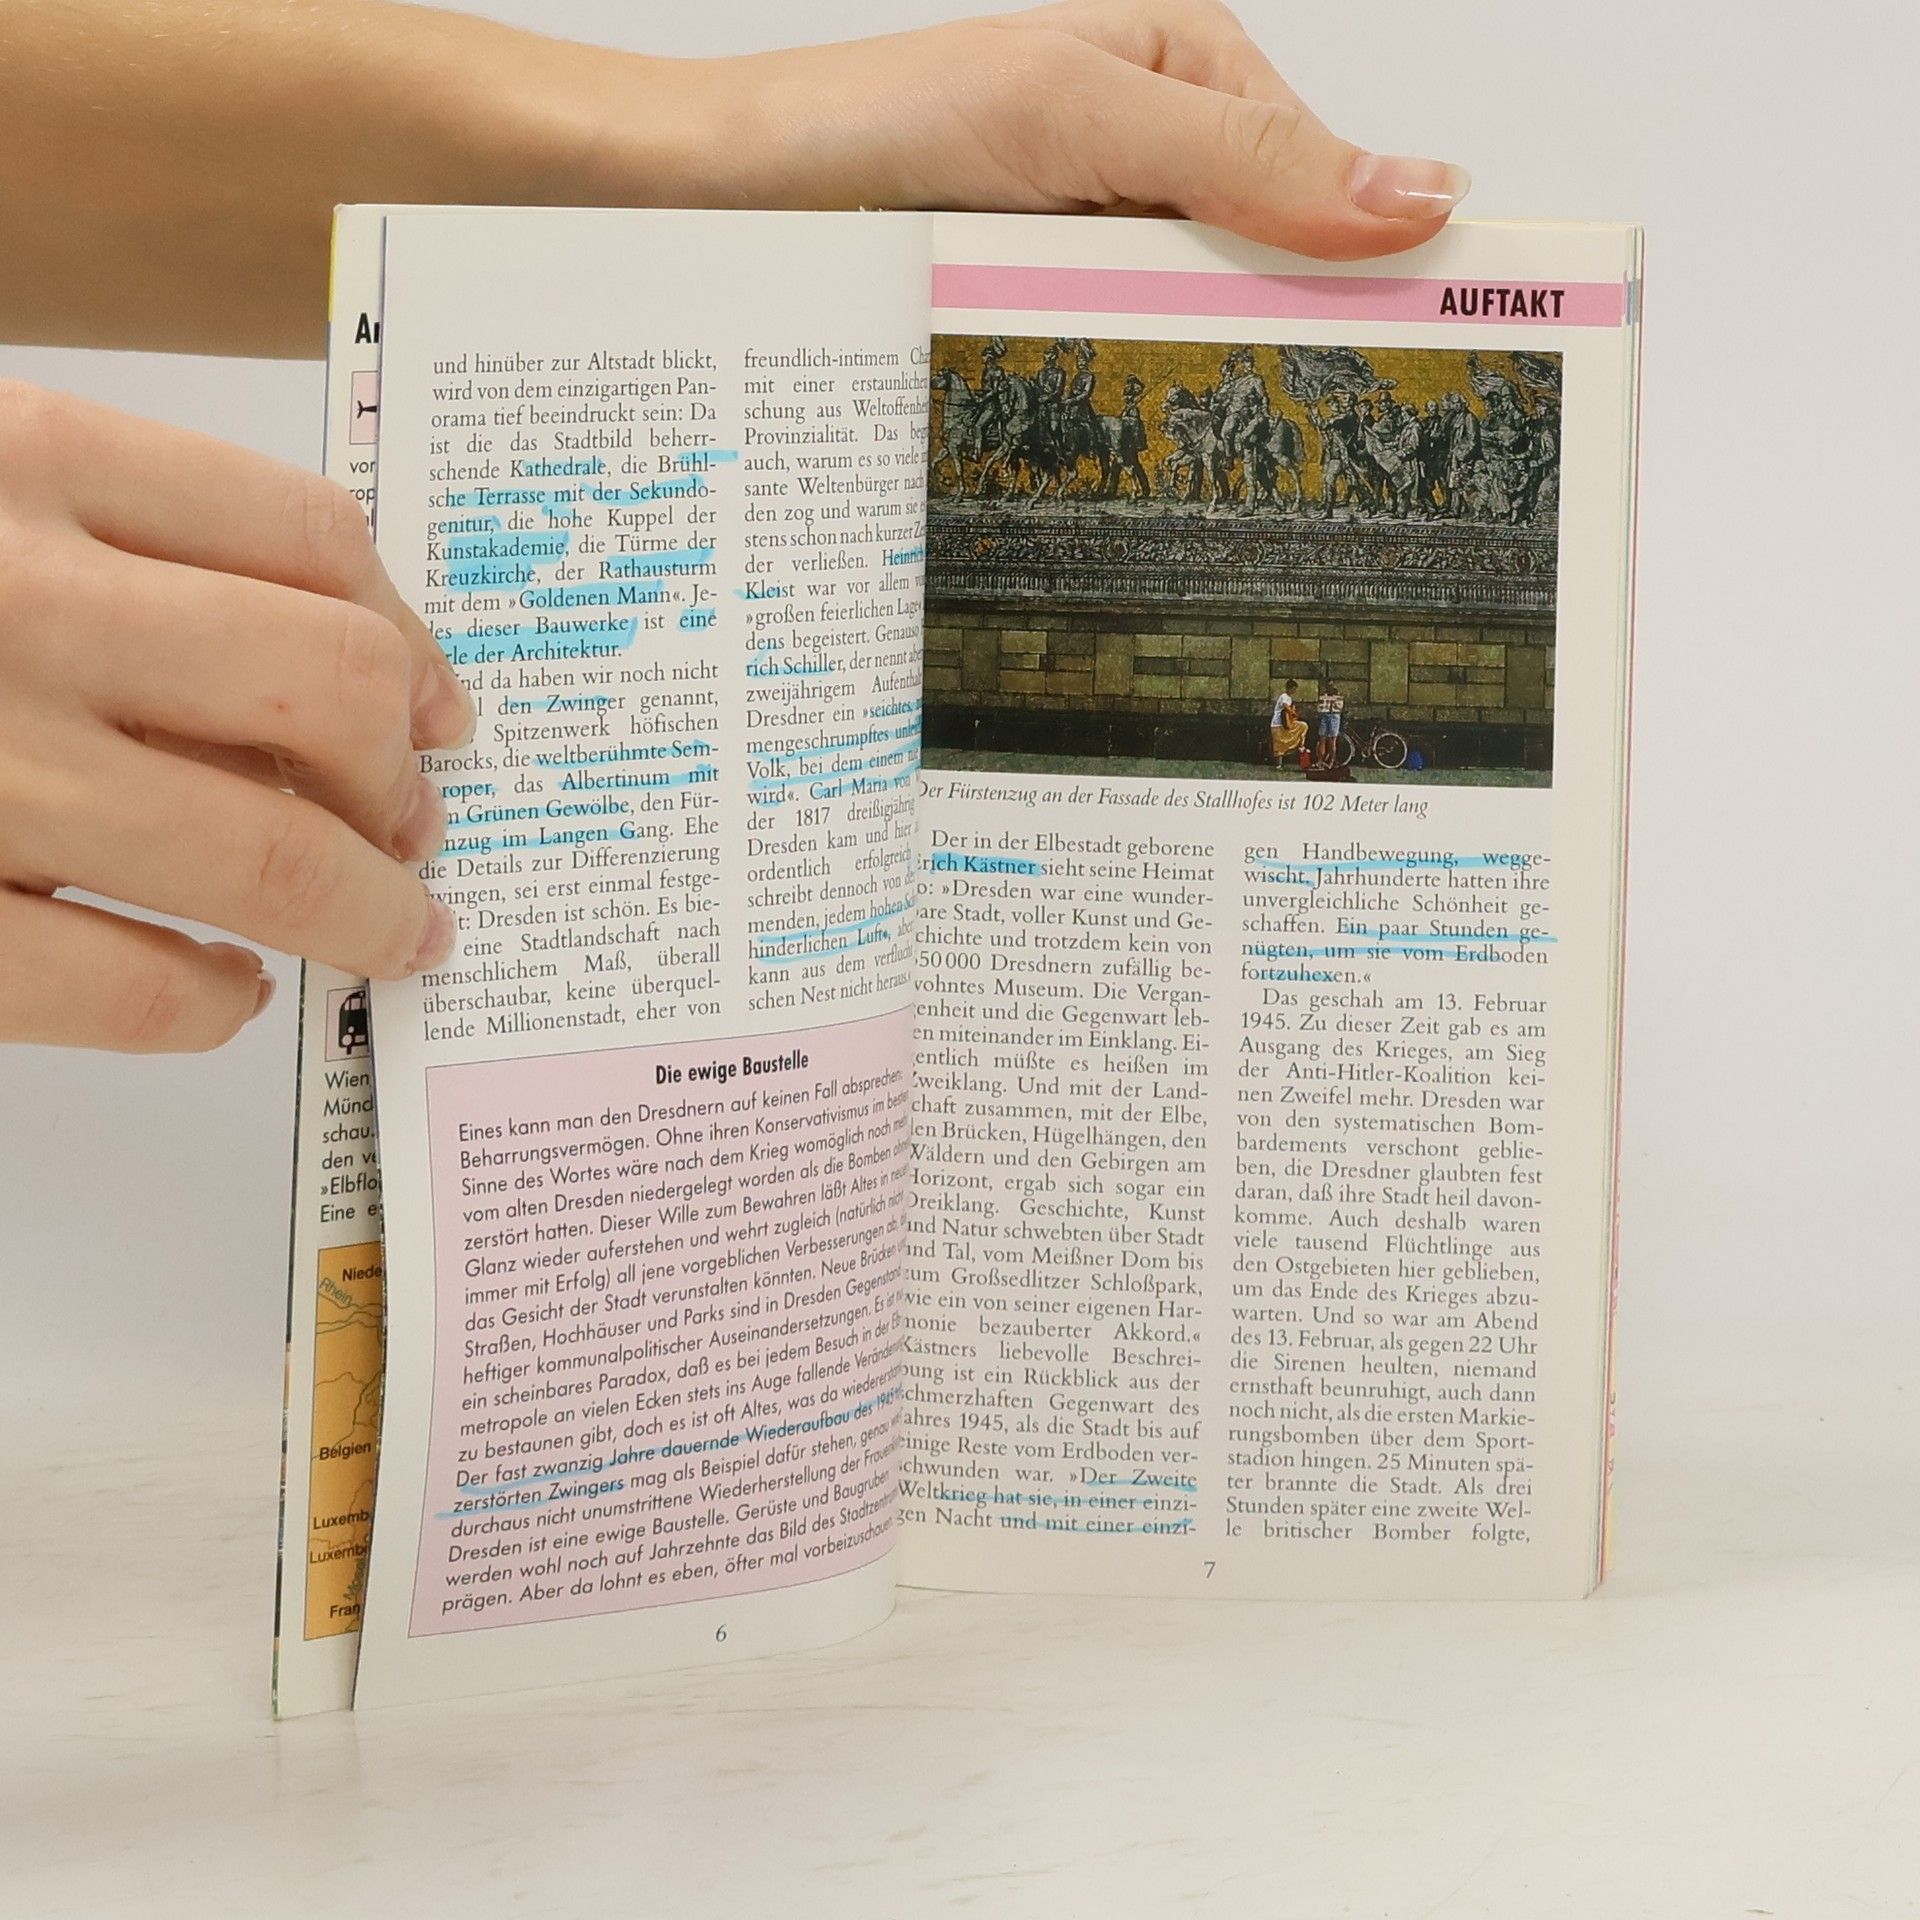 und hinüber zur Altstadt blickt,
wird von dem einzigartigen Pan-
orama tief beeindruckt sein: Da
ist die das Stadtbild beherr-
schende Kathedrale, die Brühl-
sche Terrasse mit der Sekundo-
genitur, die hohe Kuppel der
Kunstakademie, die Türme der
Kreuzkirche, der Rathausturm
mit dem »Goldenen Mann«. Je-
des dieser Bauwerke ist eine
der Architektur.
da haben wir noch nicht
den Zwinger genannt,
Spitzenwerk höfischen
Barocks, die weltberühmte Sem-
roper, das Albertinum mit
Grünen Gewölbe, den Für-
nzug im Langen Gang. Ehe
die Details zur Differenzierung
wingen, sei erst einmal festge-
t: Dresden ist schön. Es bie-
eine Stadtlandschaft nach
menschlichem Maß, überall
überschaubar, keine überquel-
lende Millionenstadt, eher von
freundlich-intimem
mit einer erstaunlichen
schung aus Weltoffenheit
Provinzialität. Das
auch, warum es so viele
sante Weltenbürger nach
den zog und warum sie
stens schon nach kurzer
der verließen. Heinrich
Kleist war vor allem
»großen feierlichen Lage«
dens begeistert. Genauso
rich Schiller, der nennt
zweijährigem
Dresdner ein »seichtes,
mengeschrumpftes
Volk, bei dem einem
wird«. Carl Maria von
der 1817 dreißigjährig
Dresden kam und hier
ordentlich erfolgreich
schreibt dennoch von
menden, jedem hohen
hinderlichen Luft«,
kann aus dem
schen Nest nicht heraus.«
Die ewige Baustelle
Eines kann man den Dresdnern auf keinen Fall absprechen:
Beharrungsvermögen. Ohne ihren Konservativismus im besten
Sinne des Wortes wäre nach dem Krieg womöglich noch mehr
vom alten Dresden niedergelegt worden als die Bomben ohnehin
zerstört hatten. Dieser Wille zum Bewahren läßt Altes in neuem
Glanz wieder auferstehen und wehrt zugleich (natürlich nicht
immer mit Erfolg) all jene vorgeblichen Verbesserungen ab, die
das Gesicht der Stadt verunstalten könnten. Neue Brücken und
Straßen, Hochhäuser und Parks sind in Dresden Gegenstand
heftiger kommunalpolitischer Auseinandersetzungen. Es ist
ein scheinbares Paradox, daß es bei jedem Besuch in der
metropole an vielen Ecken stets ins Auge fallende
zu bestaunen gibt, doch es ist oft Altes, was da
Der fast zwanzig Jahre dauernde Wiederaufbau des 1945
zerstörten Zwingers mag als Beispiel dafür stehen, genau
durchaus nicht unumstrittene Wiederherstellung der
Dresden ist eine ewige Baustelle. Gerüste und Baugruben
werden wohl noch auf Jahrzehnte das Bild des Stadtzentrums
prägen. Aber da lohnt es eben, öfter mal vorbeizuschauen.
6
AUFTAKT
Der Fürstenzug an der Fassade des Stallhofes ist 102 Meter lang
Der in der Elbestadt geborene
Erich Kästner sieht seine Heimat
so: »Dresden war eine wunder-
bare Stadt, voller Kunst und Ge-
schichte und trotzdem kein von
650 000 Dresdnern zufällig be-
wohntes Museum. Die Vergan-
genheit und die Gegenwart leb-
ten miteinander im Einklang. Ei-
gentlich müßte es heißen im
Zweiklang. Und mit der Land-
schaft zusammen, mit der Elbe,
den Brücken, Hügelhängen, den
Wäldern und den Gebirgen am
Horizont, ergab sich sogar ein
Dreiklang. Geschichte, Kunst
und Natur schwebten über Stadt
und Tal, vom Meißner Dom bis
zum Großsedlitzer Schloßpark,
wie ein von seiner eigenen Har-
monie bezauberter Akkord.«
Kästners liebevolle Beschrei-
bung ist ein Rückblick aus der
schmerzhaften Gegenwart des
Jahres 1945, als die Stadt bis auf
einige Reste vom Erdboden ver-
schwunden war. »Der Zweite
Weltkrieg hat sie, in einer einzi-
gen Nacht und mit einer einzi-
gen Handbewegung, wegge-
wischt. Jahrhunderte hatten ihre
unvergleichliche Schönheit ge-
schaffen. Ein paar Stunden ge-
nügten, um sie vom Erdboden
fortzuhexen.«
Das geschah am 13. Februar
1945. Zu dieser Zeit gab es am
Ausgang des Krieges, am Sieg
der Anti-Hitler-Koalition kei-
nen Zweifel mehr. Dresden war
von den systematischen Bom-
bardements verschont geblie-
ben, die Dresdner glaubten fest
daran, daß ihre Stadt heil davon-
komme. Auch deshalb waren
viele tausend Flüchtlinge aus
den Ostgebieten hier geblieben,
um das Ende des Krieges abzu-
warten. Und so war am Abend
des 13. Februar, als gegen 22 Uhr
die Sirenen heulten, niemand
ernsthaft beunruhigt, auch dann
noch nicht, als die ersten Markie-
rungsbomben über dem Sport-
stadion hingen. 25 Minuten spä-
ter brannte die Stadt. Als drei
Stunden später eine zweite Wel-
le britischer Bomber folgte,
7
vor
Wien
Münc
schau.
den
»Elbflo
Eine
Niede
Rhein
Belgien
Luxemb
Luxemb
Mosel
Fran